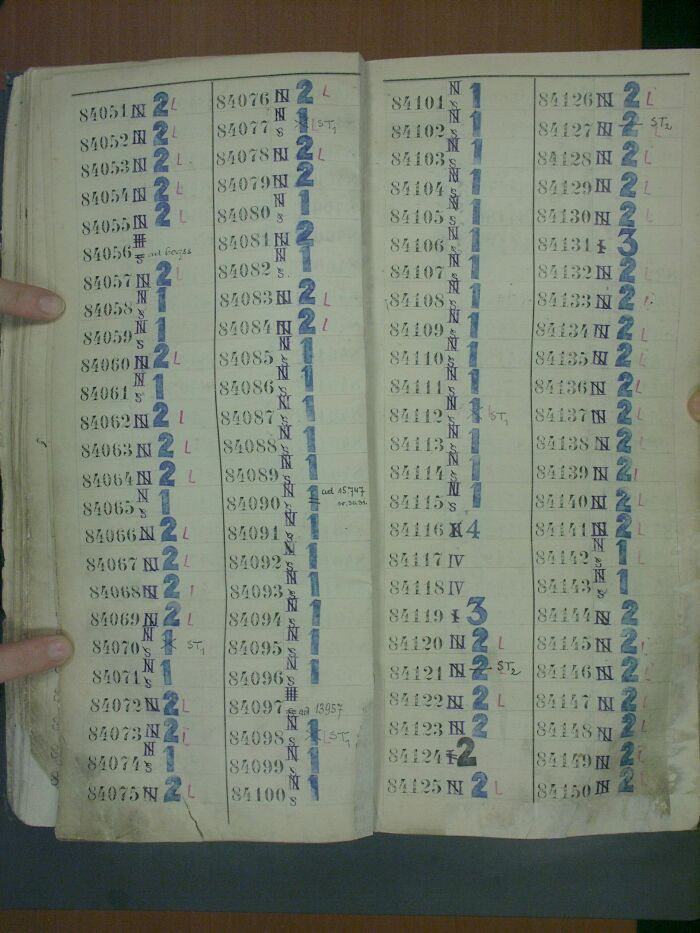 84051 N 2 L
84052 N 2 L
84053 N 2 L
84054 N 2 L
84055 N 2 L
84056 III s ad 60955
84057 N 2 L
84058 N s 1
84059 N s 1
84060 N 2 L
84061 N s 1
84062 N 2 L
84063 N 2 L
84064 N 2 L
84065 N s 1
84066 N 2 L
84067 N 2 L
84068 N 2 L
84069 N 2 L
84070 N s 1 ST1
84071 N s 1
84072 N 2 L
84073 N 2 L
84074 N s 1
84075 N 2 L
84076 N 2 L
84077 N s 1 L ST1
84078 N 2 L
84079 N 2
84080 N s 1
84081 N 2
84082 N s 1
84083 N 2 L
84084 N 2 L
84085 N s 1
84086 N s 1
84087 N s 1
84088 N s 1
84089 N s 1
84090 N s 1 ad 15747
84091 N s 1
84092 N s 1
84093 N s 1
84094 N s 1
84095 N s 1
84096 N s 1
84097 III s ad 13957
84098 N s 1 L ST1
84099 N s 1
84100 N s 1
84101 N s 1
84102 N s 1
84103 N s 1
84104 N s 1
84105 N s 1
84106 N s 1
84107 N s 1
84108 N s 1
84109 N s 1
84110 N s 1
84111 N s 1
84112 N s 1 L ST1
84113 N s 1
84114 N s 1
84115 N s 1
84116 4
84117 IV
84118 IV
84119 I 3
84120 N 2 L
84121 N 2 L ST2
84122 N 2 L
84123 N 2 L
84124 I 2
84125 N 2 L
84126 N 2 L
84127 N 2 L ST2
84128 N 2 L
84129 N 2 L
84130 N 2 L
84131 I 3
84132 N 2 L
84133 N 2 L
84134 N 2 L
84135 N 2 L
84136 N 2 L
84137 N 2 L
84138 N 2 L
84139 N 2 L
84140 N 2 L
84141 N 2 L
84142 N s 1 L
84143 N s 1
84144 N 2
84145 N 2 L
84146 N 2 L
84147 N 2 L
84148 N 2 L
84149 N 2 L
84150 N 2 L